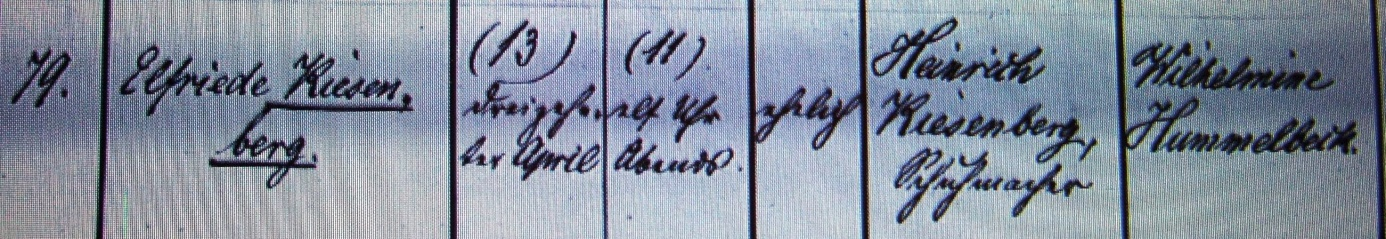 79.
Elfriede Kiesen-
berg.
(13)
dreizehn-
ter April
(11).
elf Uhr
Abends.
ehelich
Heinrich
Kiesenberg,
Schuhmacher
Wilhelmine
Hummelbeck.